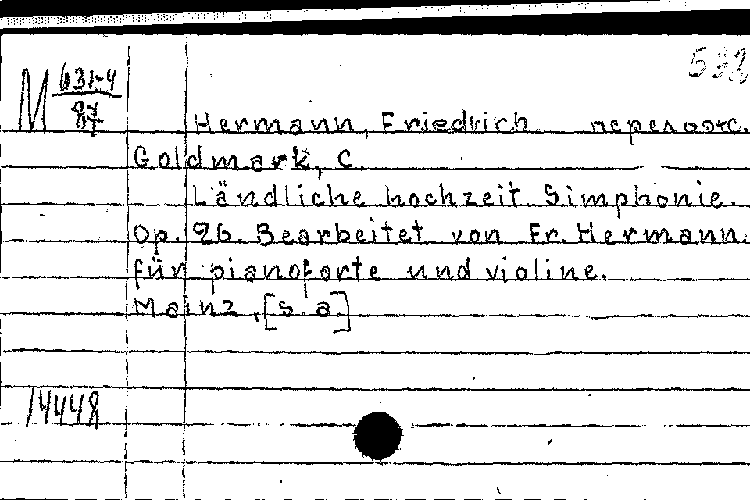 M 631-4
87
Hermann, Friedrich перелож.
Goldmark, C.
Ländliche hochzeit. Simphonie.
Op. 26. Bearbeitet von Fr. Hermann.
für pianoforte und violine.
Mainz, [s. a.]
14448